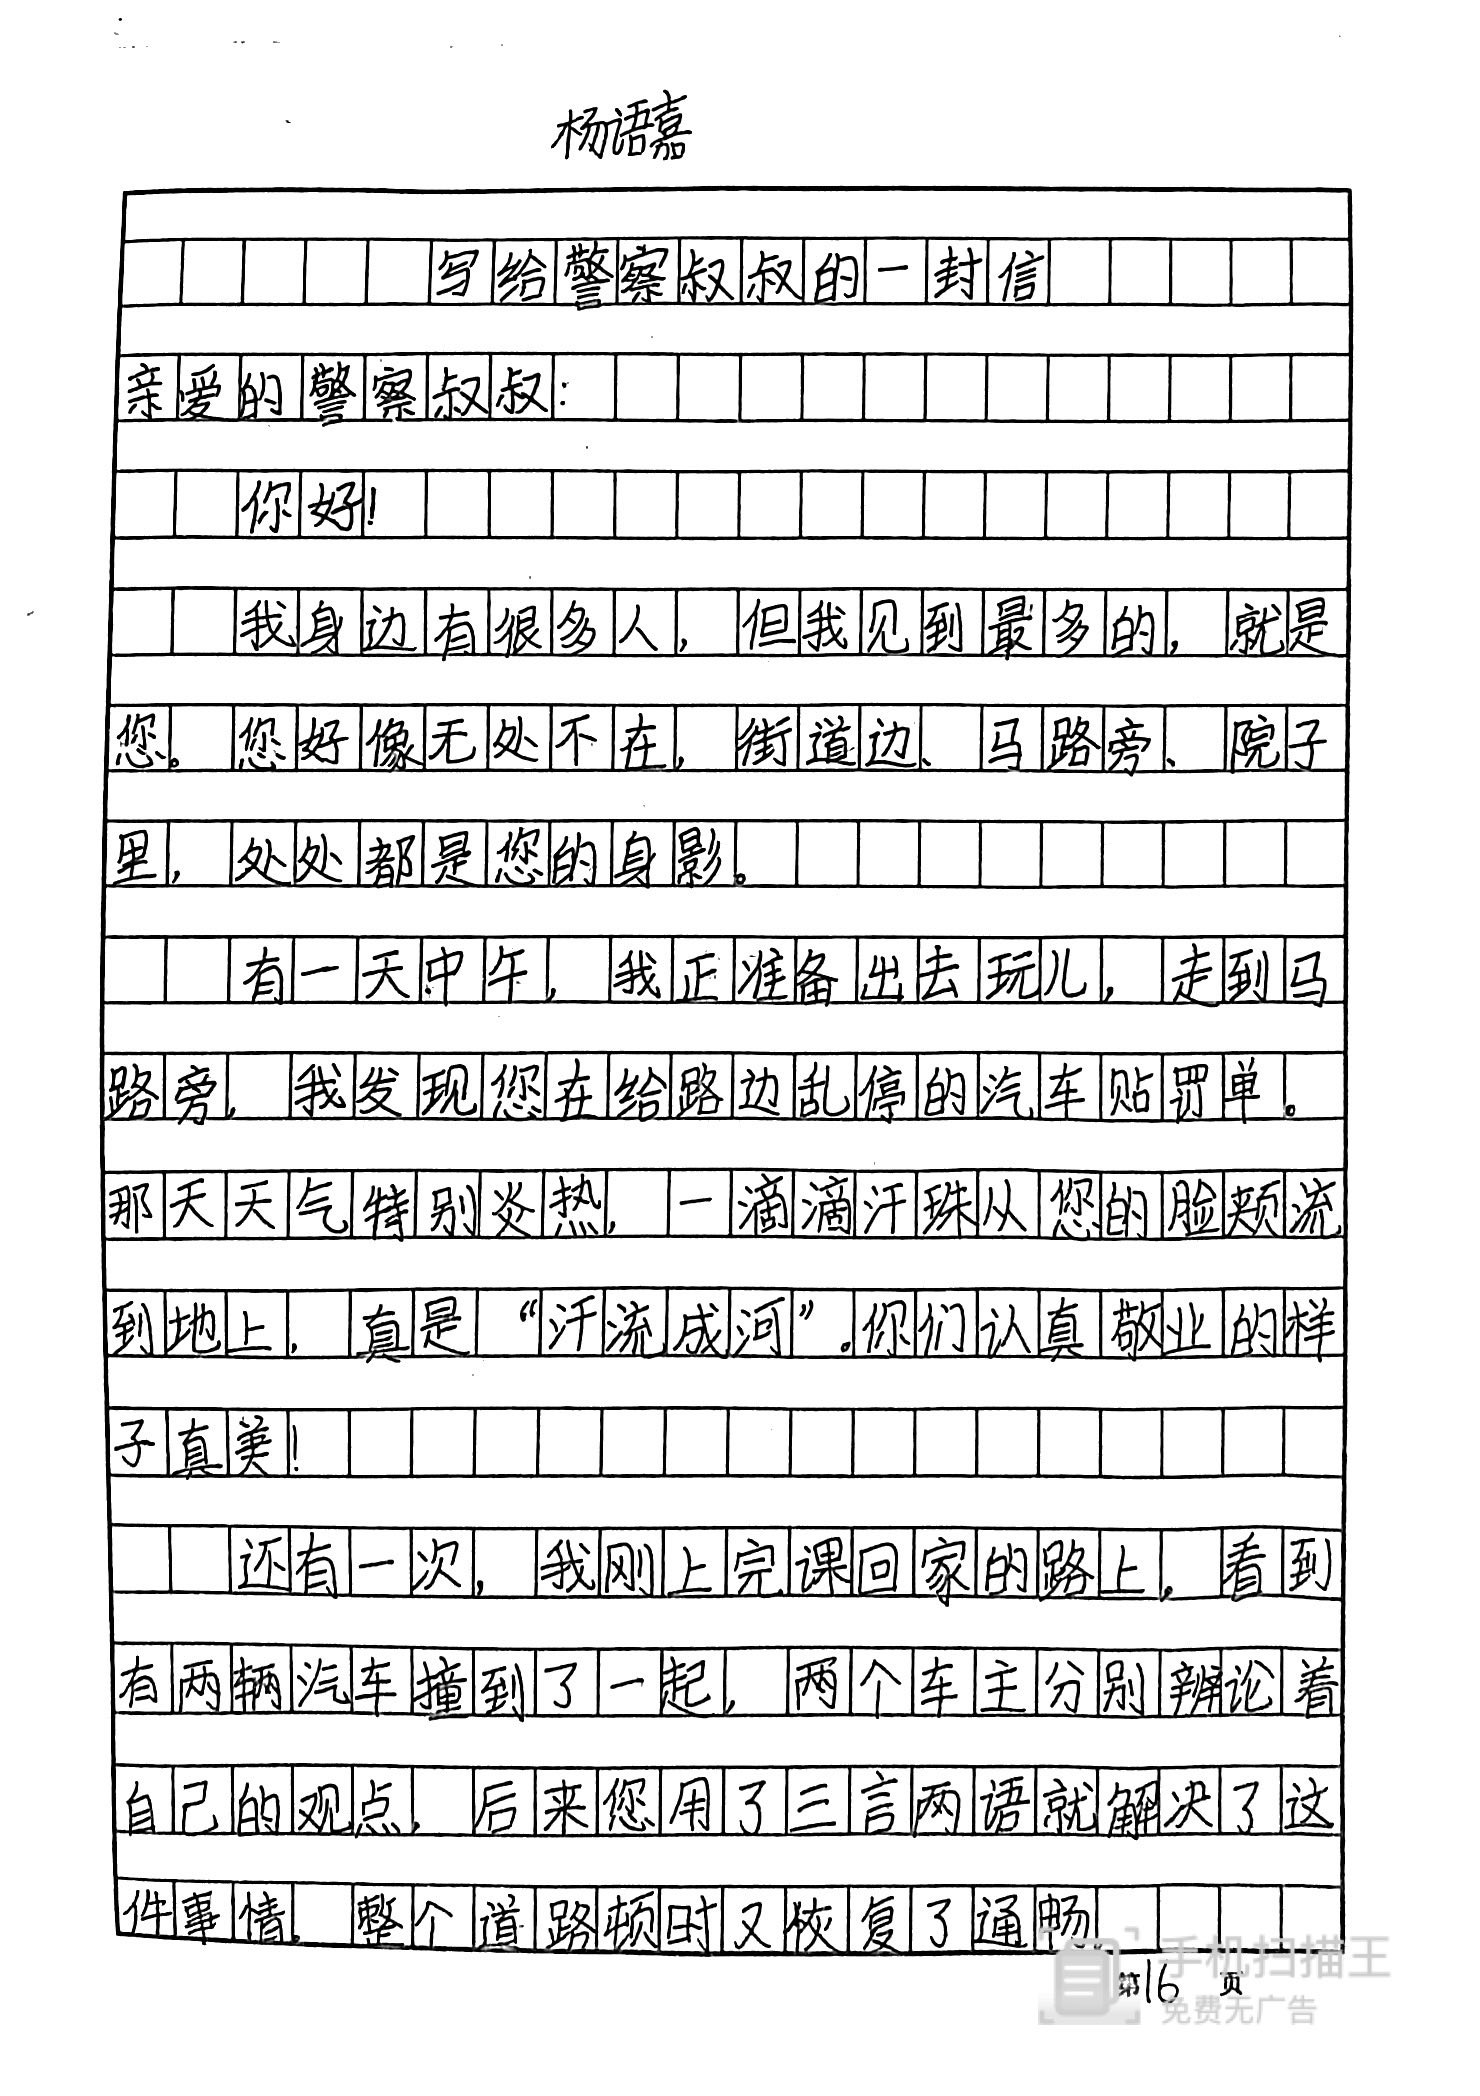 杨语嘉
写给警察叔叔的一封信
亲爱的警察叔叔：
你好！
我身边有很多人，但我见到最多的，就是
您。您好像无处不在，街道边、马路旁、院子
里，处处都是您的身影。
有一天中午，我正准备出去玩儿，走到马
路旁，我发现您在给路边乱停的汽车贴罚单。
那天天气特别炎热，一滴滴汗珠从您的脸颊流
到地上，真是“汗流成河”。你们认真敬业的样
子真美！
还有一次，我刚上完课回家的路上，看到
有两辆汽车撞到了一起，两个车主分别辨论着
自己的观点，后来您用了三言两语就解决了这
件事情，整个道路顿时又恢复了通畅。
第16页
手机扫描王
免费无广告